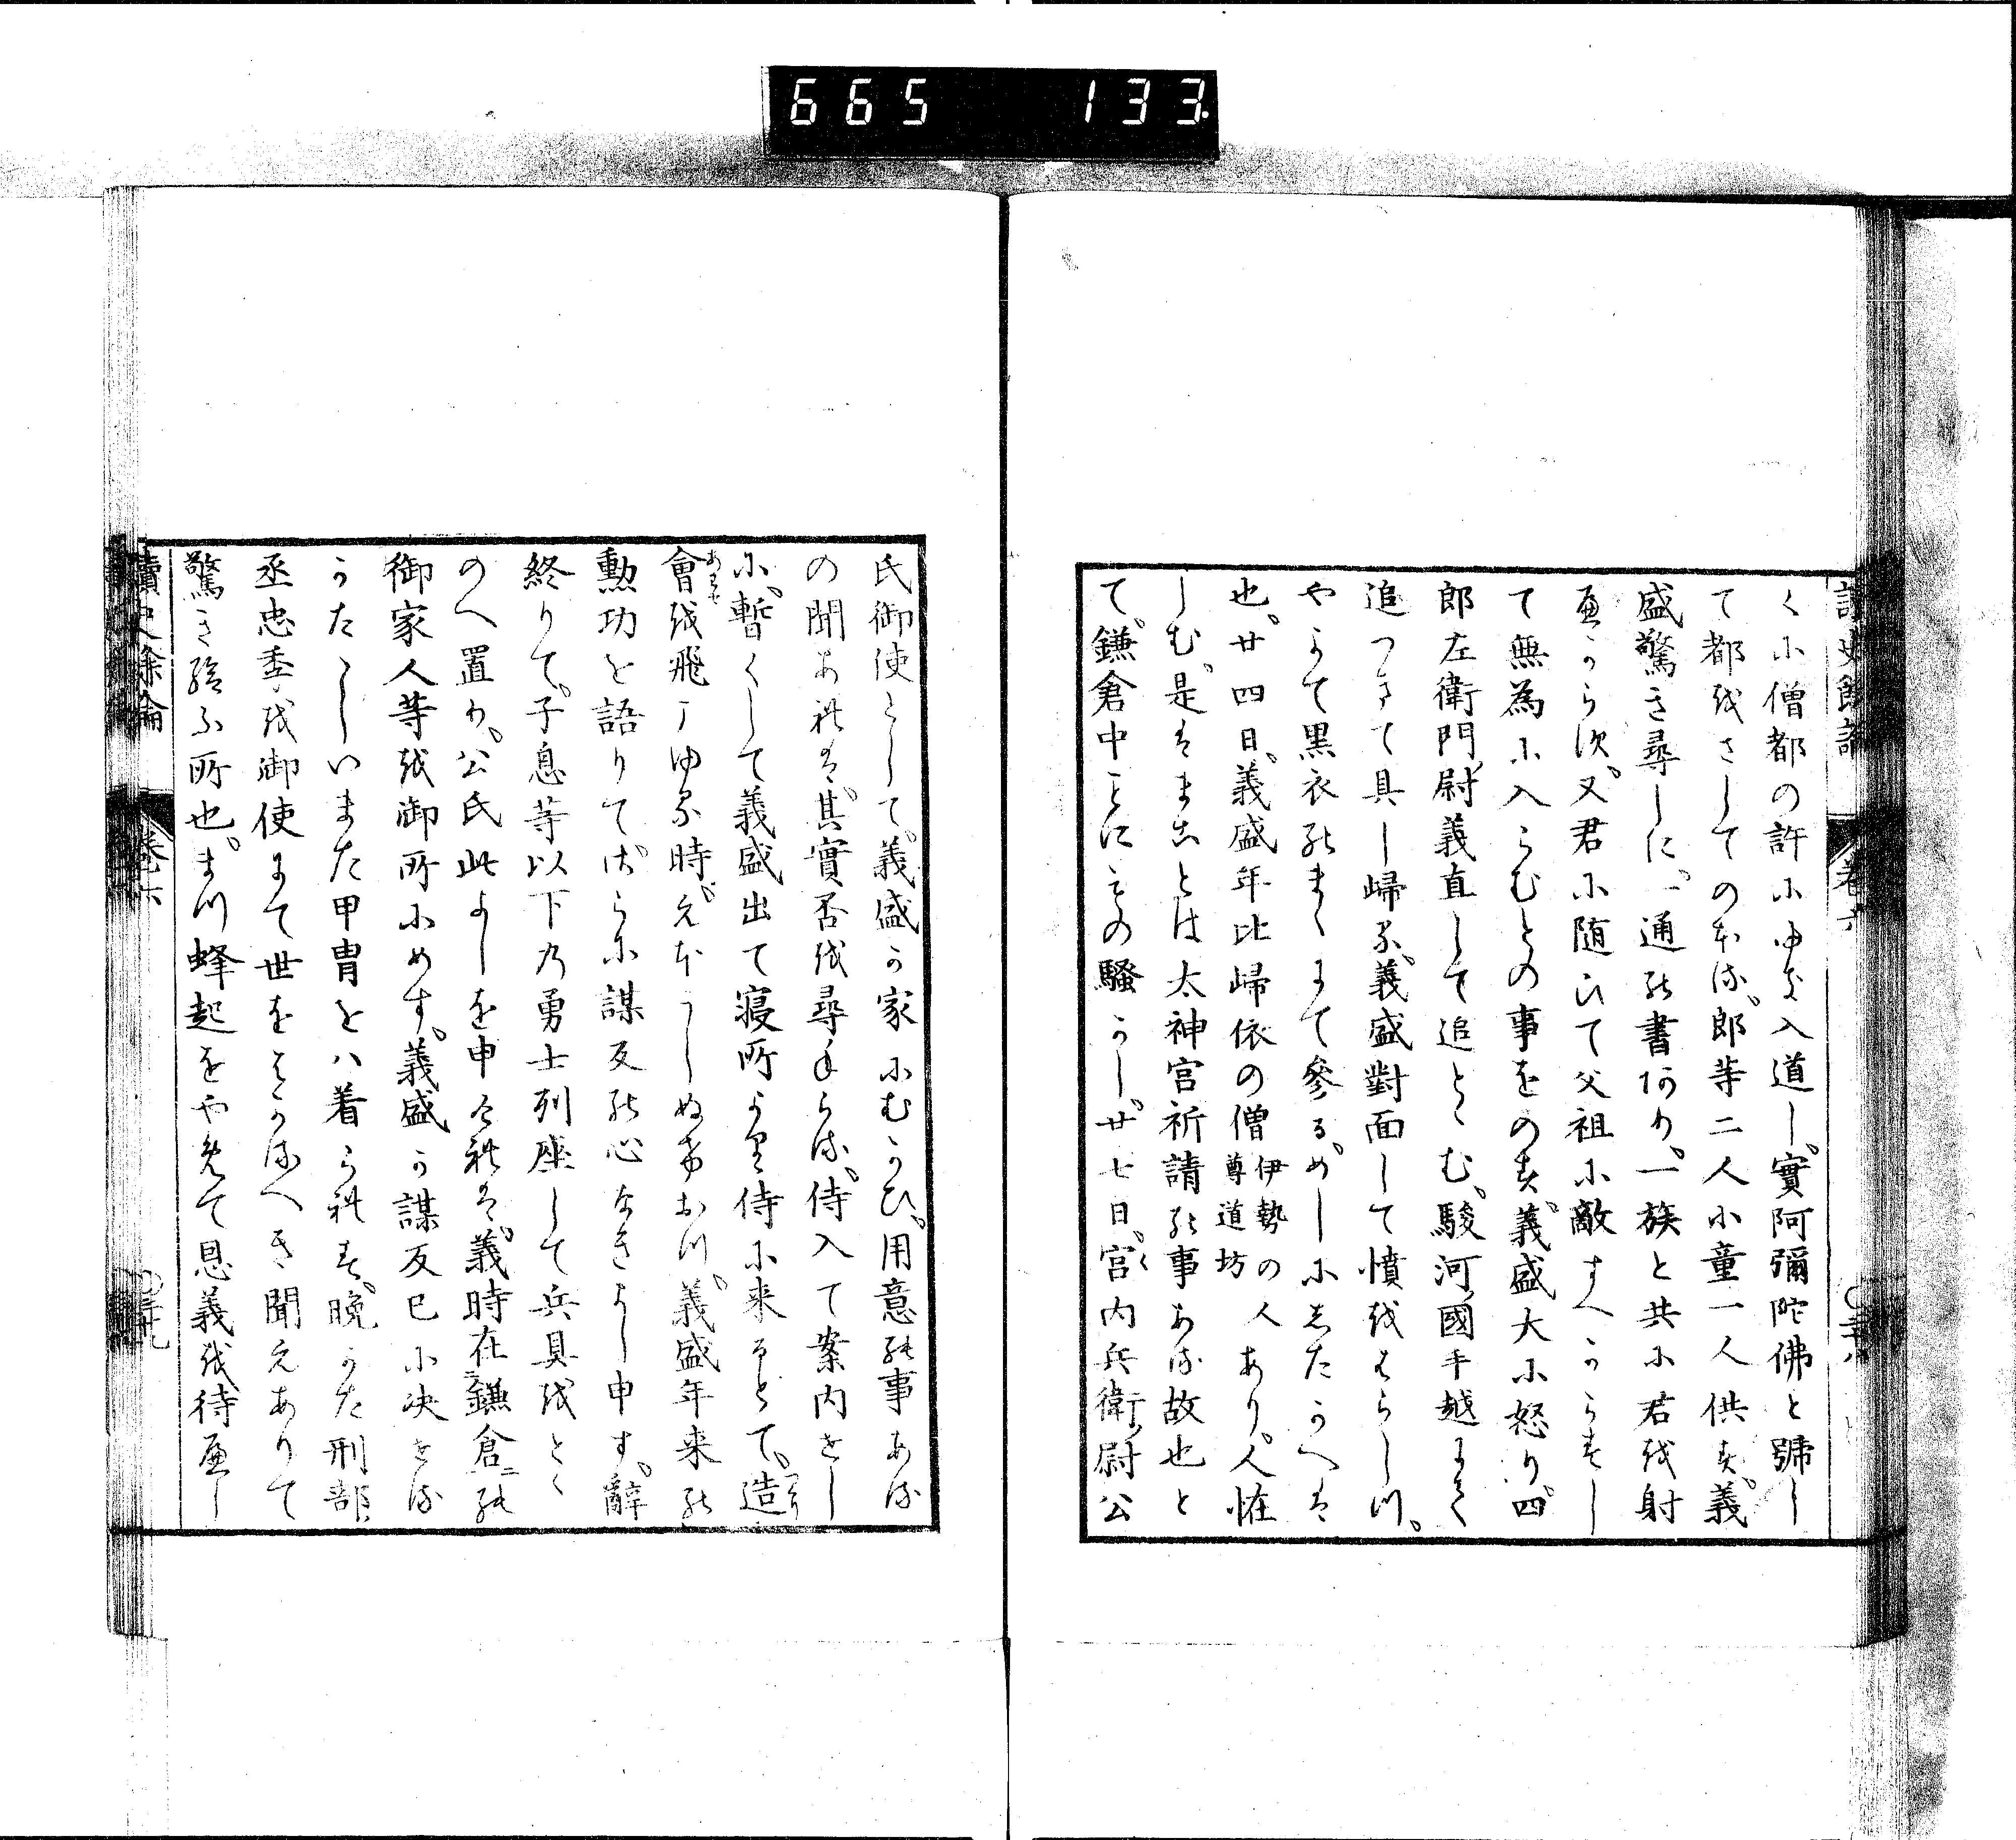 665 133
讀史餘論 卷六
く小僧都の許にゆき入道し實阿彌陀佛と號し
て都をさしてのほる。郎等二人小童一人供す。義
盛驚き尋しに、一通の書あり。一族と共に君を射
へからす、又君に隨ひて父祖に敵すへからすし
て無為に入らむとの事をのす。義盛大に怒り、四
郎左衛門尉義直して追とゝむ。駿河國手越にて
追つきて具し歸る。義盛對面して憤をはらしつ。
やかて黒衣のまゝにて參る。めしにしたかへは
也。廿四日、義盛年比歸依の僧伊勢の人あり。尊道坊人恠
しむ。是はまことは太神宮祈請の事ある故也と
て、鎌倉中ことにその騷かし。廿七日、宮内兵衛尉公
氏御使として、義盛か家にむかひ、用意の事ある
の聞あれは、其實否を尋ねらる。侍入て案内せし
に、暫くして義盛出て寝所より侍に来るとて、造
會を飛こゆる時、えほうしぬけおつ。義盛年来の
勲功を語りてさらに謀反の心なきよし申す。辭
終りて、子息等以下の勇士列座して兵具をとゝ
のへ置り。公氏此よしを申けれは、義時在鎌倉の
御家人等を御所にめす。義盛か謀反已に决せる
うたかしいまた甲冑をハ着られす。晩かた刑部
丞忠季を御使にて世をはかるへき聞えありて
驚き給ふ所也。まつ蜂起をやめて恩義を待へし
讀史餘論 卷六